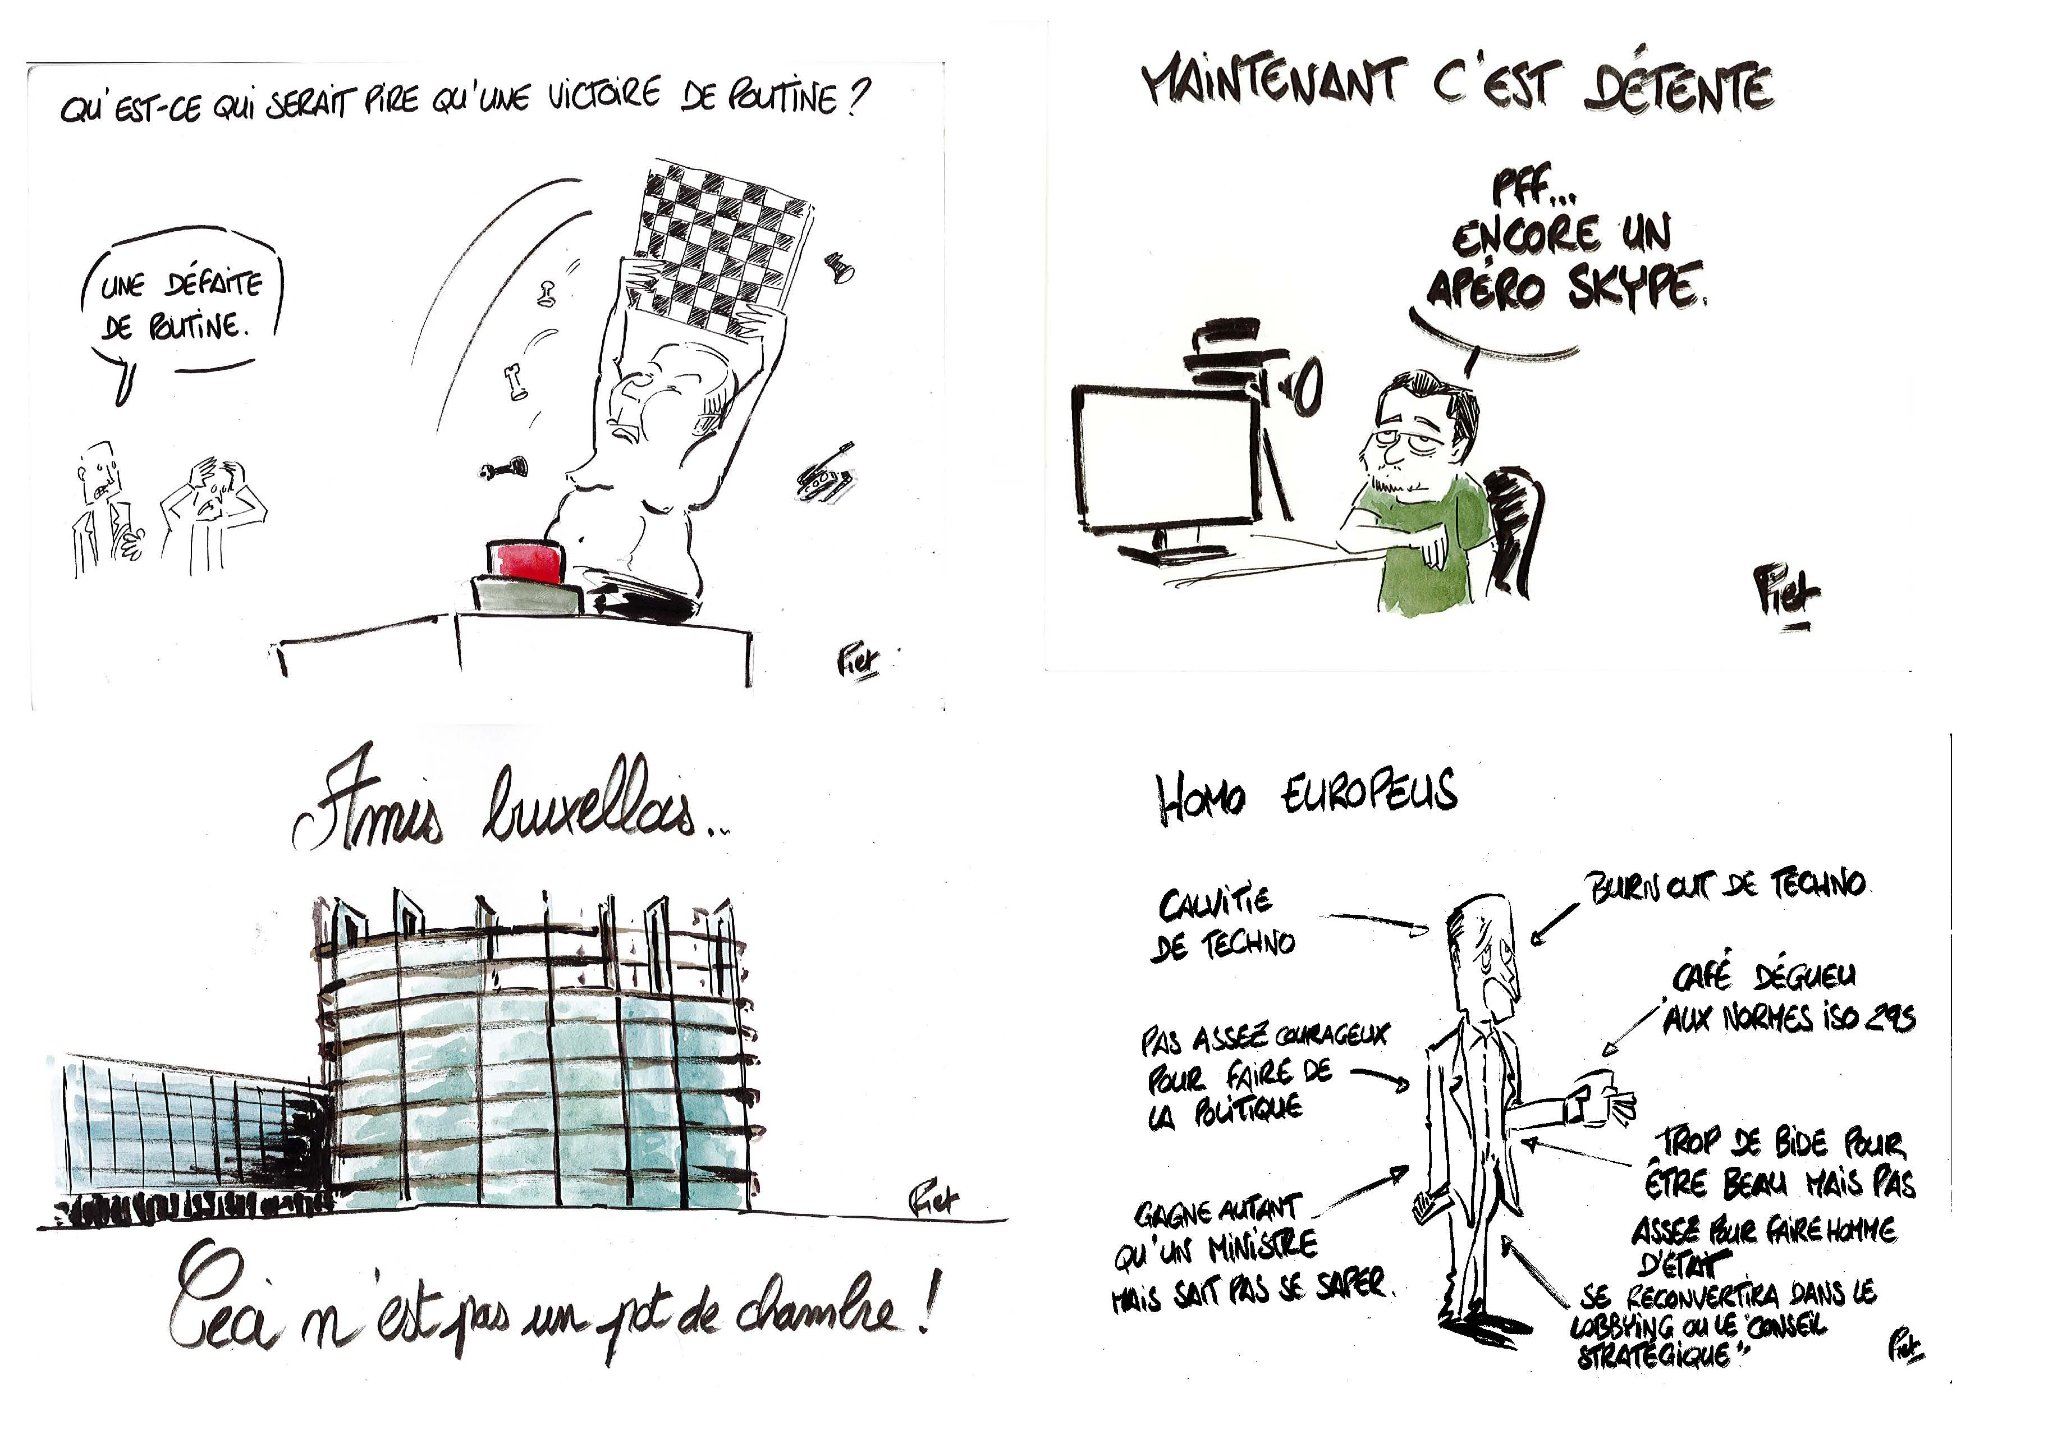 QU'EST-CE QUI SERAIT PIRE QU'UNE VICTOIRE DE POUTINE ?
UNE DÉFAITE
DE POUTINE.
Piet
MAINTENANT C'EST DÉTENTE
PFF...
ENCORE UN
APÉRO SKYPE.
Piet
Amis bruxellois...
Piet
Ceci n'est pas un pot de chambre !
HOMO EUROPEUS
CALVITIE
DE TECHNO
BURN OUT DE TECHNO
CAFÉ DÉGUEU
AUX NORMES ISO 295
PAS ASSEZ COURAGEUX
POUR FAIRE DE
LA POLITIQUE
TROP DE BIDE POUR
ÊTRE BEAU MAIS PAS
ASSEZ POUR FAIRE HOMME
D'ÉTAT
GAGNE AUTANT
QU'UN MINISTRE
MAIS SAIT PAS SE SAPER.
SE RECONVERTIRA DANS LE
LOBBYING OU LE "CONSEIL
STRATÉGIQUE"
Piet